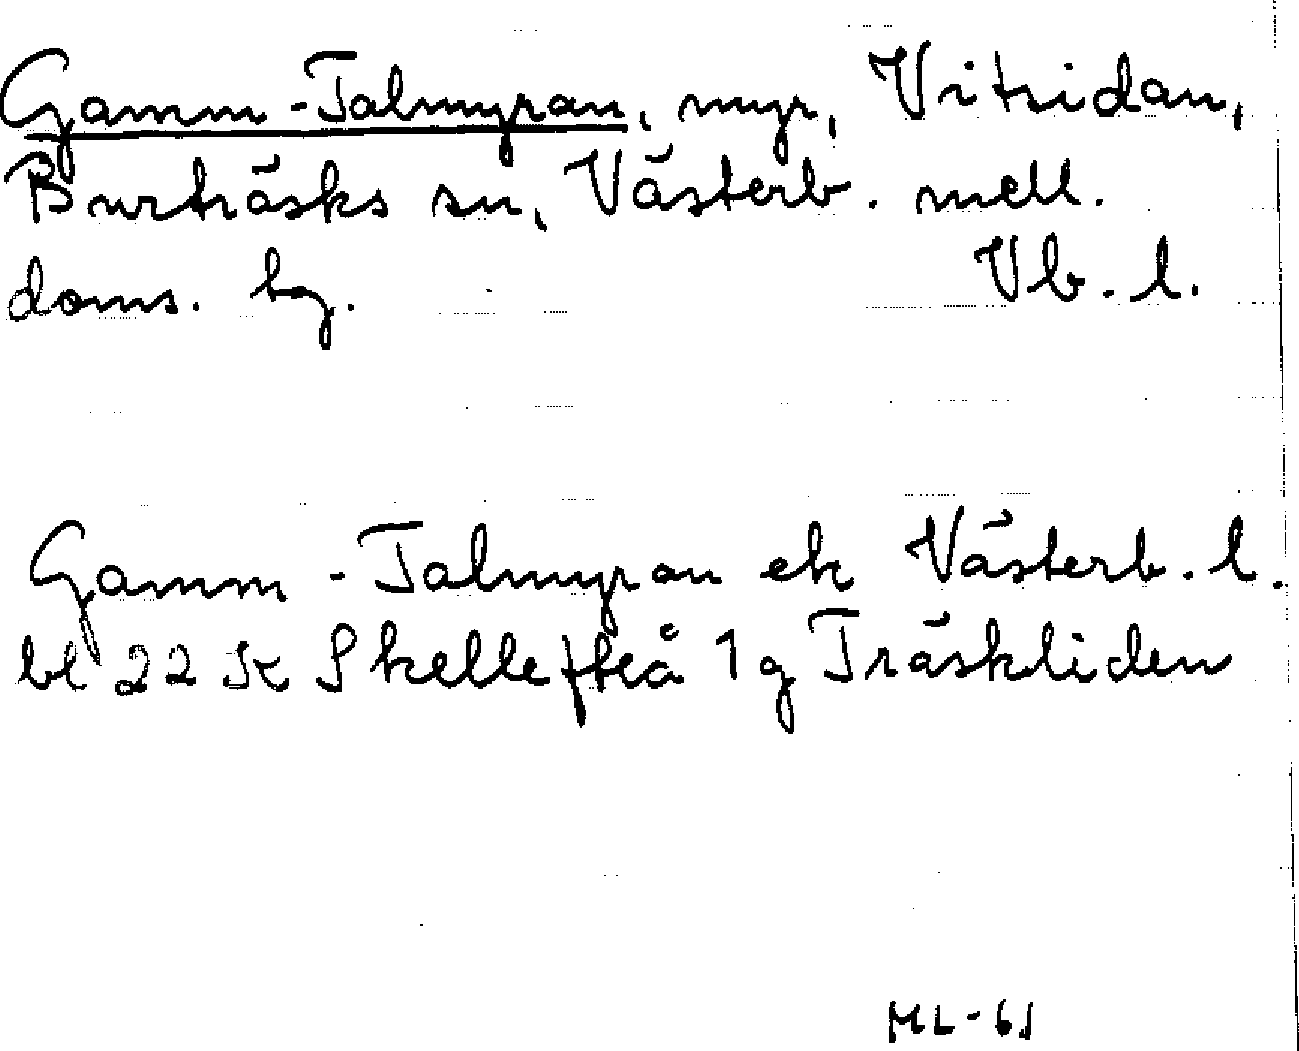 Gamm-Talmyran, myr, Vitsidan,
Burträsks sn, Västerb. mell.
doms. hg. Vb. l.
Gamm-Talmyran ek Västerb. l.
bl 22 K Skellefteå 1 g Träskliden
ML-61